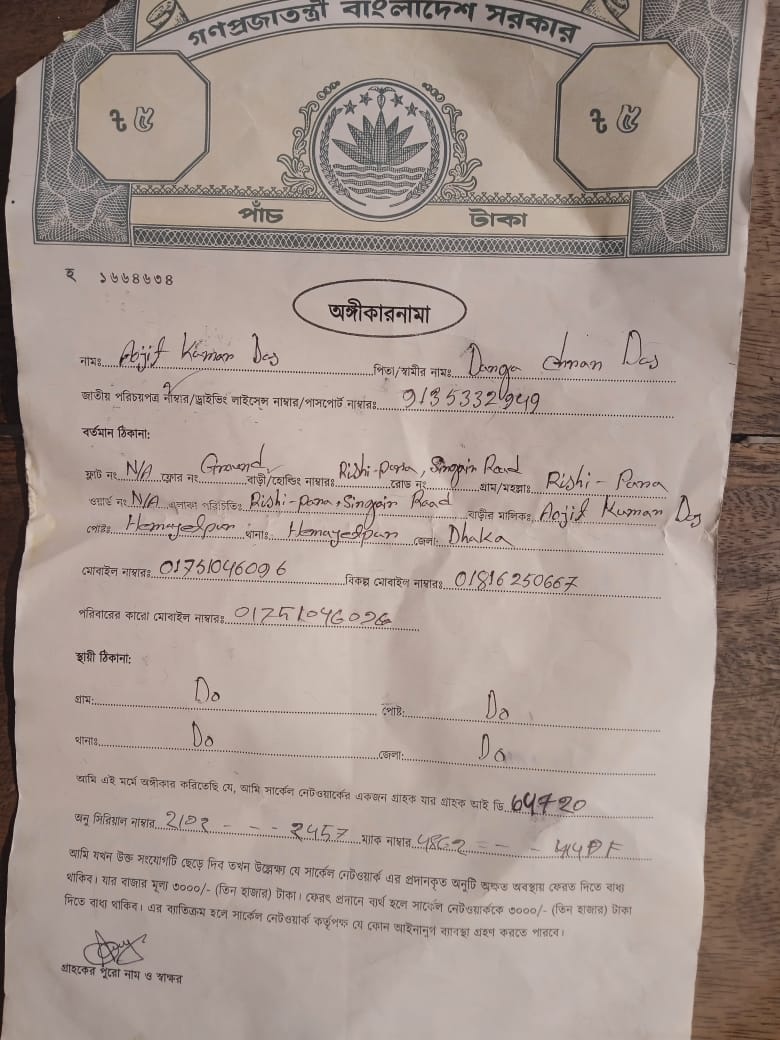 গণপ্রজাতন্ত্রী বাংলাদেশ সরকার
৳ ৫ ৳ ৫
পাঁচ টাকা
হ ১৬৬৪৬৩৪
অঙ্গীকারনামা
নামঃ Abjit Kuman Das পিতা/স্বামীর নামঃ Danga chman Das
জাতীয় পরিচয়পত্র নাম্বার/ড্রাইভিং লাইসেন্স নাম্বার/পাসপোর্ট নাম্বারঃ 9135332949
বর্তমান ঠিকানা:
ফ্লাট নং N/A ফ্লোর নং Ground বাড়ী/হোল্ডিং নাম্বারঃ Rishi-para, Singair Road রোড নং গ্রাম/মহল্লাঃ Rishi - Para
ওয়ার্ড নং N/A এলাকা পরিচিতিঃ Rishi-para, Singair Road বাড়ীর মালিকঃ Abjit Kuman Das
পোষ্টঃ Hemayetpur থানাঃ Hemayetpur জেলা: Dhaka
মোবাইল নাম্বারঃ 01751046096 বিকল্প মোবাইল নাম্বারঃ 01816250667
পরিবারের কারো মোবাইল নাম্বারঃ 01751046096
স্থায়ী ঠিকানা:
গ্রাম: Do পোষ্ট: Do
থানাঃ Do জেলা: Do
আমি এই মর্মে অঙ্গীকার করিতেছি যে, আমি সার্কেল নেটওয়ার্কের একজন গ্রাহক যার গ্রাহক আই ডি 64720
অনু সিরিয়াল নাম্বার 2102 - - - 2457 ম্যাক নাম্বার
আমি যখন উক্ত সংযোগটি ছেড়ে দিব তখন উল্লেক্ষ্য যে সার্কেল নেটওয়ার্ক এর প্রদানকৃত অনুটি অক্ষত অবস্থায় ফেরত দিতে বাধ্য
থাকিব। যার বাজার মূল্য ৩০০০/- (তিন হাজার) টাকা। ফেরৎ প্রদানে ব্যর্থ হলে সার্কেল নেটওয়ার্ককে ৩০০০/- (তিন হাজার) টাকা
দিতে বাধ্য থাকিব। এর ব্যতিক্রম হলে সার্কেল নেটওয়ার্ক কর্তৃপক্ষ যে কোন আইনানুগ ব্যাবস্থা গ্রহণ করতে পারবে।
গ্রাহকের পুরো নাম ও স্বাক্ষর